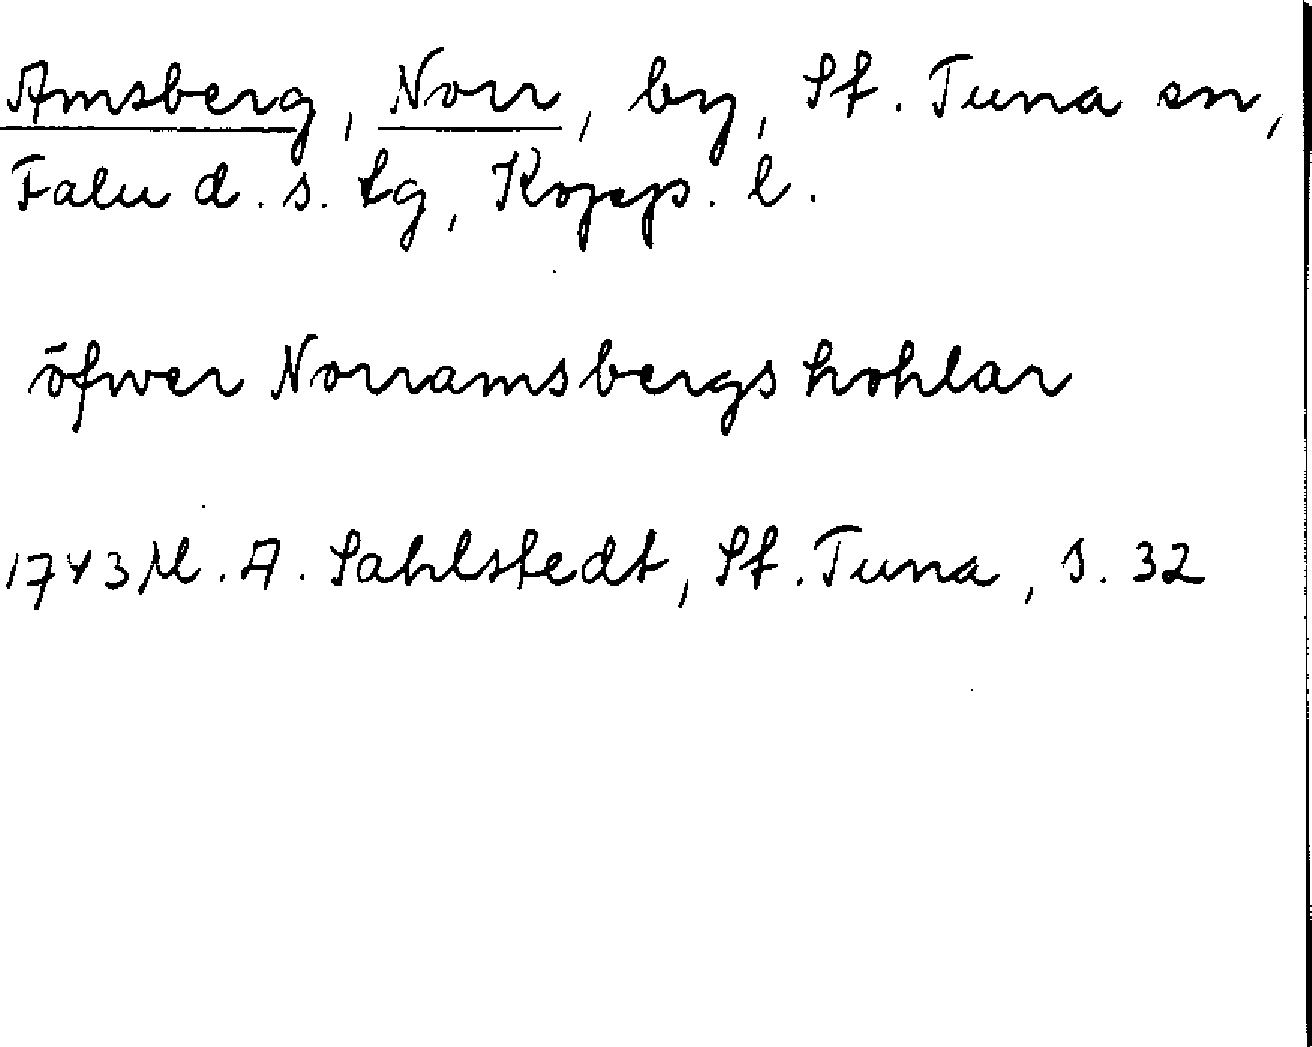 Amsberg, Norr, by, St. Tuna sn,
Falu d. s. tg, Kopp. l.
öfwer Norramsbergs hohlar
1743 M. A. Sahlstedt, St. Tuna, s. 32